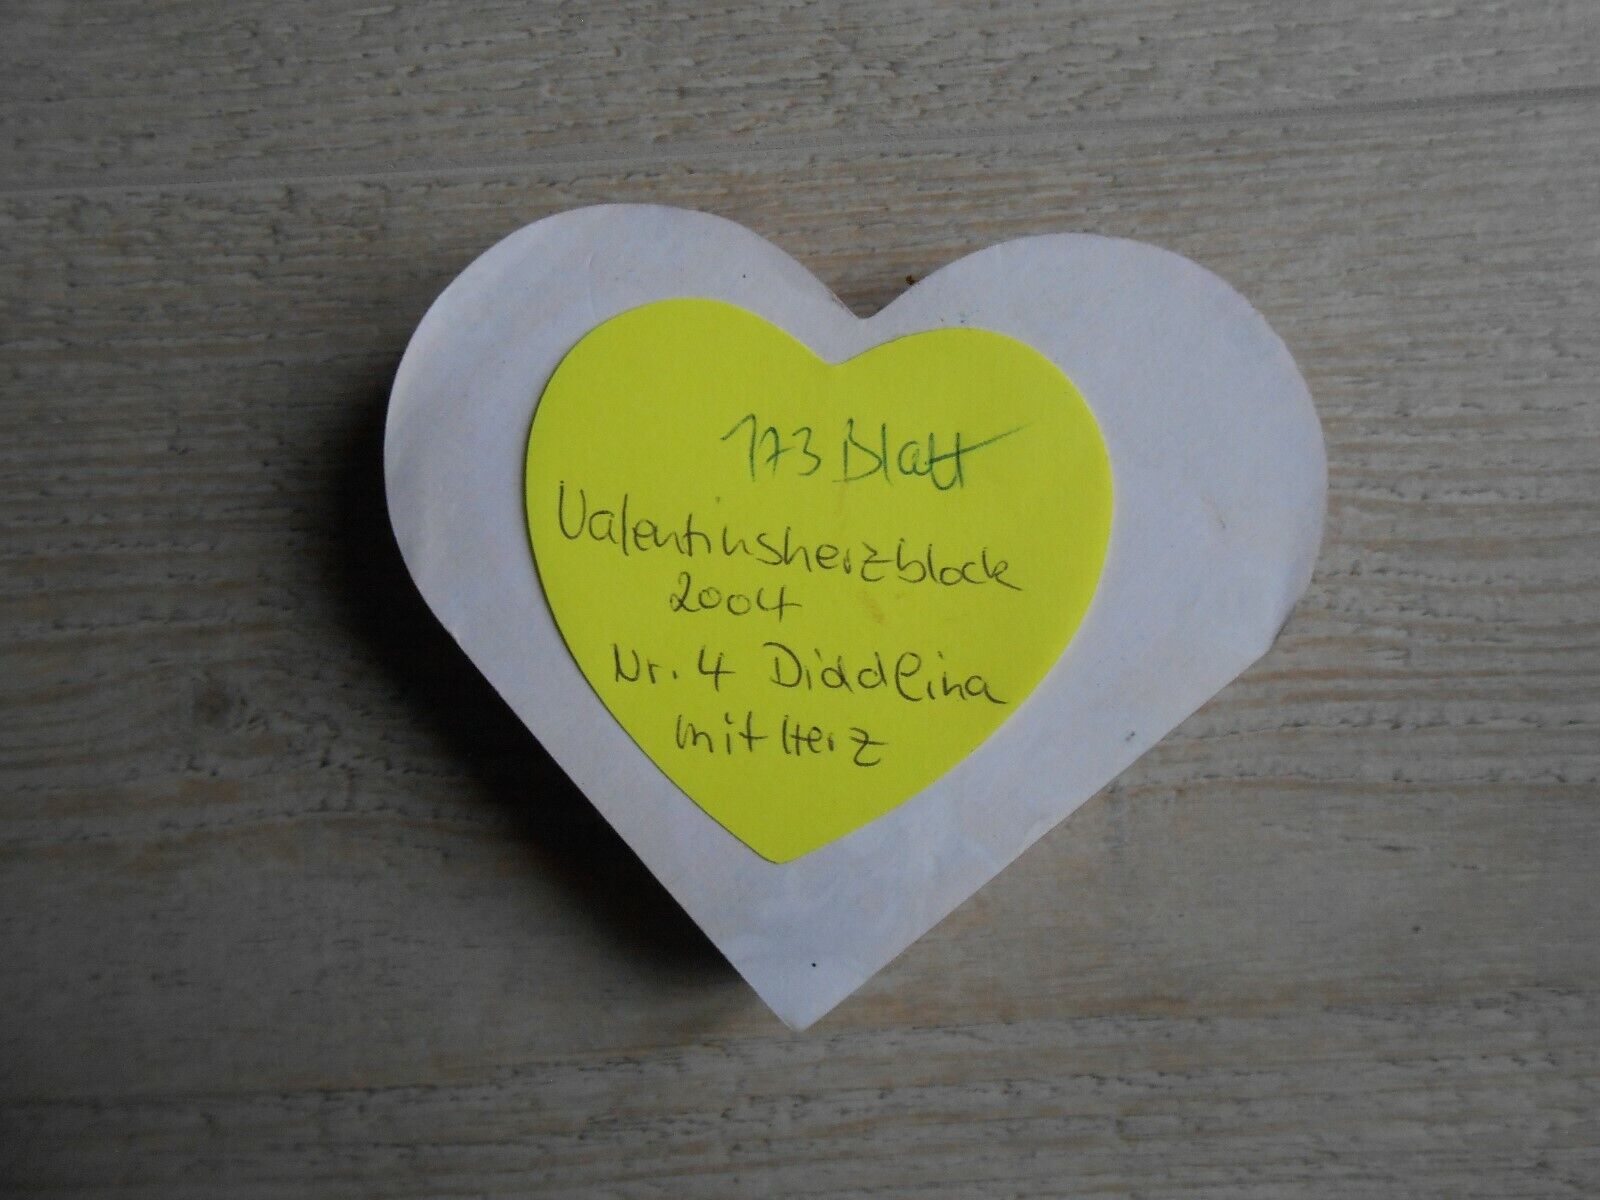 173 Blatt
Valentinsherzblock
2004
Nr. 4 Diddlina
mit Herz